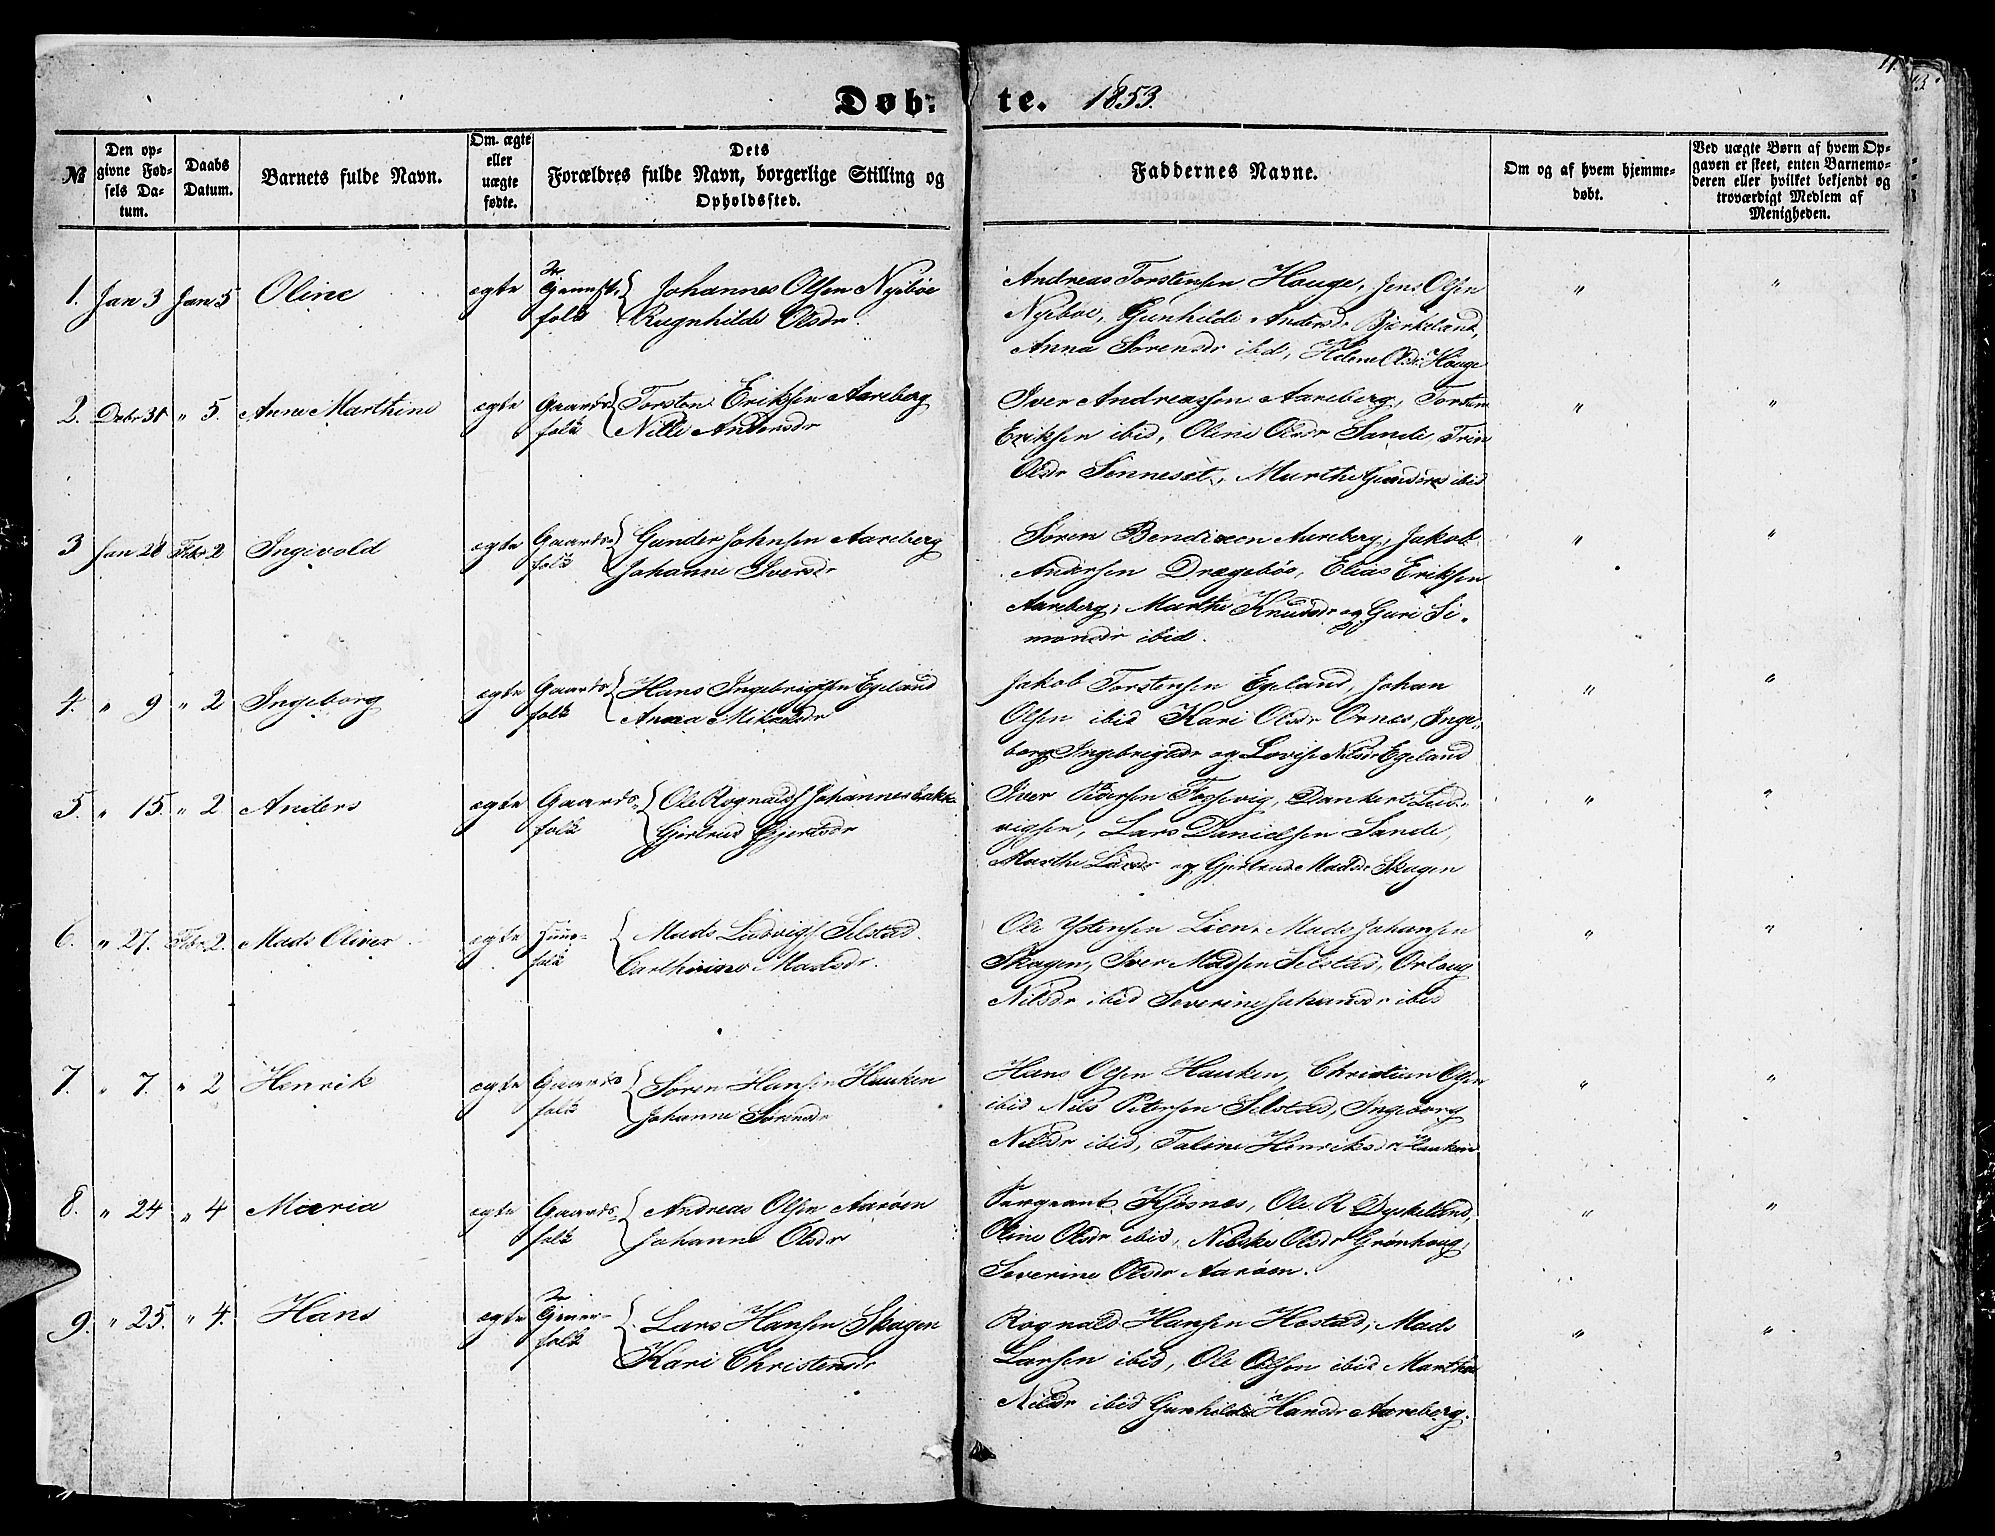 11.
Døb- te. 1853.
№
Den opgivne Fødsels Datum.
Daabs Datum.
Barnets fulde Navn.
Om ægte eller uægte fødte.
Dets Forældres fulde Navn, borgerlige Stilling og Opholdssted.
Faddernes Navne.
Om og af hvem hjemmedøbt.
Ved uægte Børn af hvem Opgaven er skeet, enten Barnemoderen eller hvilket bekjendt og troværdigt Medlem af Menigheden.
1. Jan 3 Jan 5 Oline ægte folk Johannes Olsen Nyibøe
Ragnhilde Olsdr.
Andreas Torstensen Houge, Jens Olsen
Nyibøe, Gunhilde Andersdr Bjerkeland,
Anna Sørensdr ibid, Helene Olsdr Houge
" "
2. Debr 31 " 5. Anne Marthine ægte Gaardsfolk Torsten Eriksen Aareberg
Nille Andersdr
Iver Andreassen Aareberg, Torsten
Eriksen ibid, Oline Olsdr Sande, Trine
Olsdr Senneset, Marthe ibid
" "
3 Jan 28 Febr 2 Ingevold ægte Gaardsfolk Gunder Johnsen Aareberg
Johanne Iversdr
Søren Bendixen Aareberg, Jakob
Andersen Drægebøe, Elias Eriksen
Aareberg, Marthe Knudsdr og Guri Simonsdr ibid.
" "
4. " 9 " 2 Ingeborg ægte Gaardsfolk Hans Ingebrigtsen Egeland
Anna Mikelsdr
Jakob Torstensen Egeland, Johan
Olsen ibid Kari Olsdr Ornes, Ingeborg Ingebrigtsdr og Lovise Nilsdr Egeland
" "
5. " 15. " 2 Anders ægte Gaardsfolk Ole Rognalds Johannes
Gjertrud Gjertsdr
Iver Pedersen Tossevig, Dankert Ludvigsen, Lars Danielsen Sande,
Marthe Larsdr og Gjertrude Madsdr Skagen
" "
6. " 27. Febr 2. Mads Oliver ægte folk Mads Ludvigs. Selstad.
Carthrine Madsdr.
Ole Lien, Mads Johansen
Skagen, Iver Madsen Selstad, Orloug
Nilsdr ibid Severine Johansdr ibid
" "
7. " 7. " 2 Henrik ægte Gaardsfolk Søren Hansen Hauken
Johanne Sørensdr
Hans Olsen Hauken, Christian Olsen
ibid Nils Petersen Selstad, Ingeborg
Nilsdr ibid, Talene Henriksdr Hauken
" "
8. " 24 " 4 Maria ægte Gaardsfolk Andreas Olsen Aarøen
Johanne Olsdr
Sergeant Kjøsnes, Ole R Dyskeland,
Oline Olsdr ibid, Nilske Olsdr Grønhoug,
Severine Olsdr Aarøen.
" "
9. " 25. " 4. Hans ægte folk Lars Hansen Skagen
Kari Christensdr
Rognald Hansen Hestad, Mads
Larsen ibid, Ole Olsen ibid Marthe
Nilsdr ibid Gunhilde Hansdr Aareberg.
" "